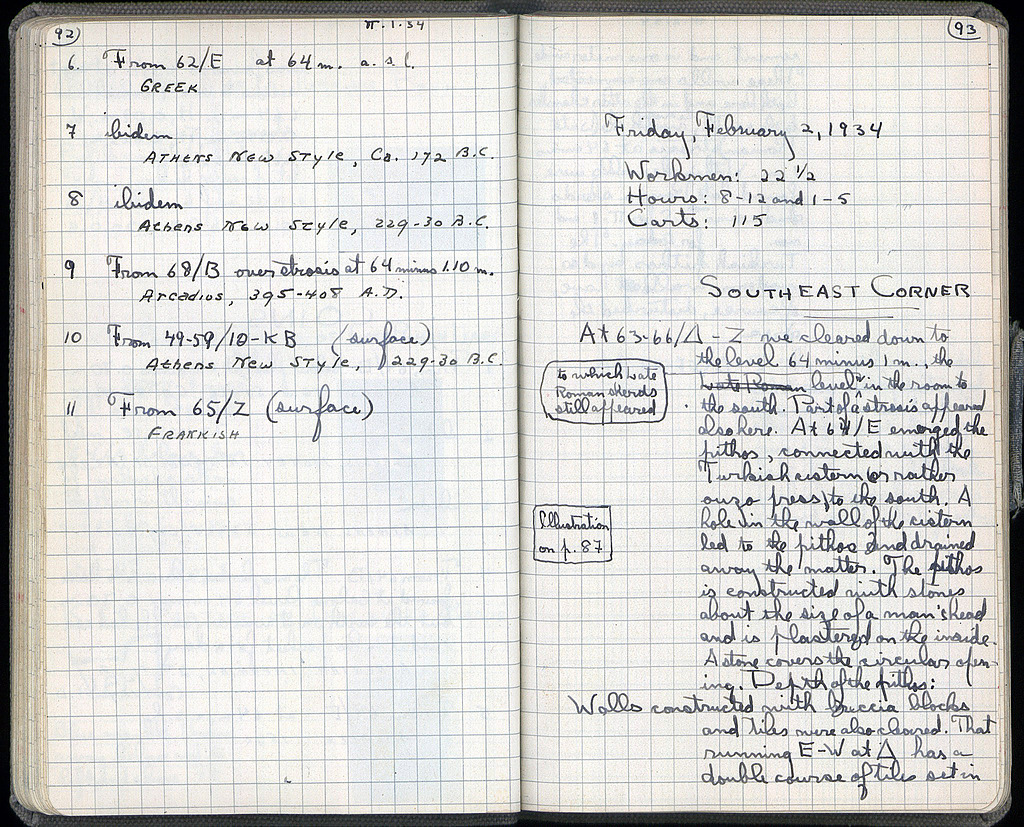 92
II.1.34
6. From 62/E at 64 m. a.s.l.
GREEK
7 ibidem
ATHENS New Style, Ca. 172 B.C.
8 ibidem
Athens New Style, 229-30 B.C.
9 From 68/B over strosis at 64 minus 1.10 m.
Arcadius, 395-408 A.D.
10 From 49-59/10-KB (surface)
Athens New Style, 229-30 B.C.
11 From 65/Z (surface)
FRANKISH
93
Friday, February 2, 1934
Workmen: 22 1/2
Hours: 8-12 and 1-5
Carts: 115
SOUTHEAST CORNER
At 63-66/Δ-Z we cleared down to
the level 64 minus 1 m., the
to which Late
Roman sherds
still appeared
Late Roman level in the room to
the south. Part of a strosis appeared
also here. At 64/E emerged the
pithos, connected with the
Turkish cistern (or rather
ouzo press) to the south. A
hole in the wall of the cistern
Illustration
on p. 87
led to the pithos and drained
away the matter. The pithos
is constructed with stones
about the size of a man's head
and is plastered on the inside.
A stone covers the circular open-
ing. Depth of the pithos:
Walls constructed with breccia blocks
and tiles were also cleared. That
running E-W at Δ has a
double course of tiles set in